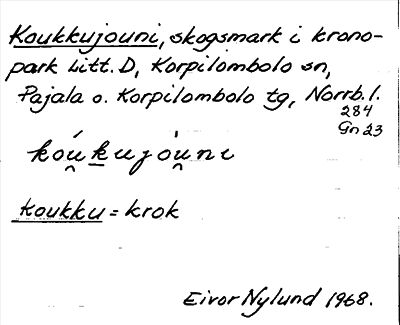 Koukkujouni, skogsmark i krono-
park Litt. D, Korpilombolo sn,
Pajala o. Korpilombolo tg, Norrb. l.
284
Gn 23
kóu̯k̲ujòu̯ni
koukku = krok
Eivor Nylund 1968.